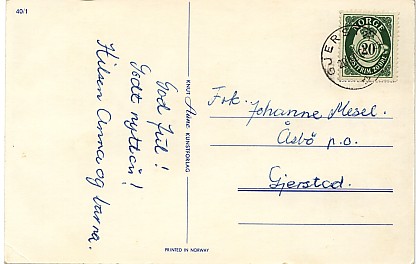 40/1
God jul!
Godt nyttår!
Hilsen Anna og barna.
KNUT Aune KUNSTFORLAG
PRINTED IN NORWAY
NORGE
20
GJERS
Frk. Johanne Mesel.
Åsbø p.o.
Gjerstad.